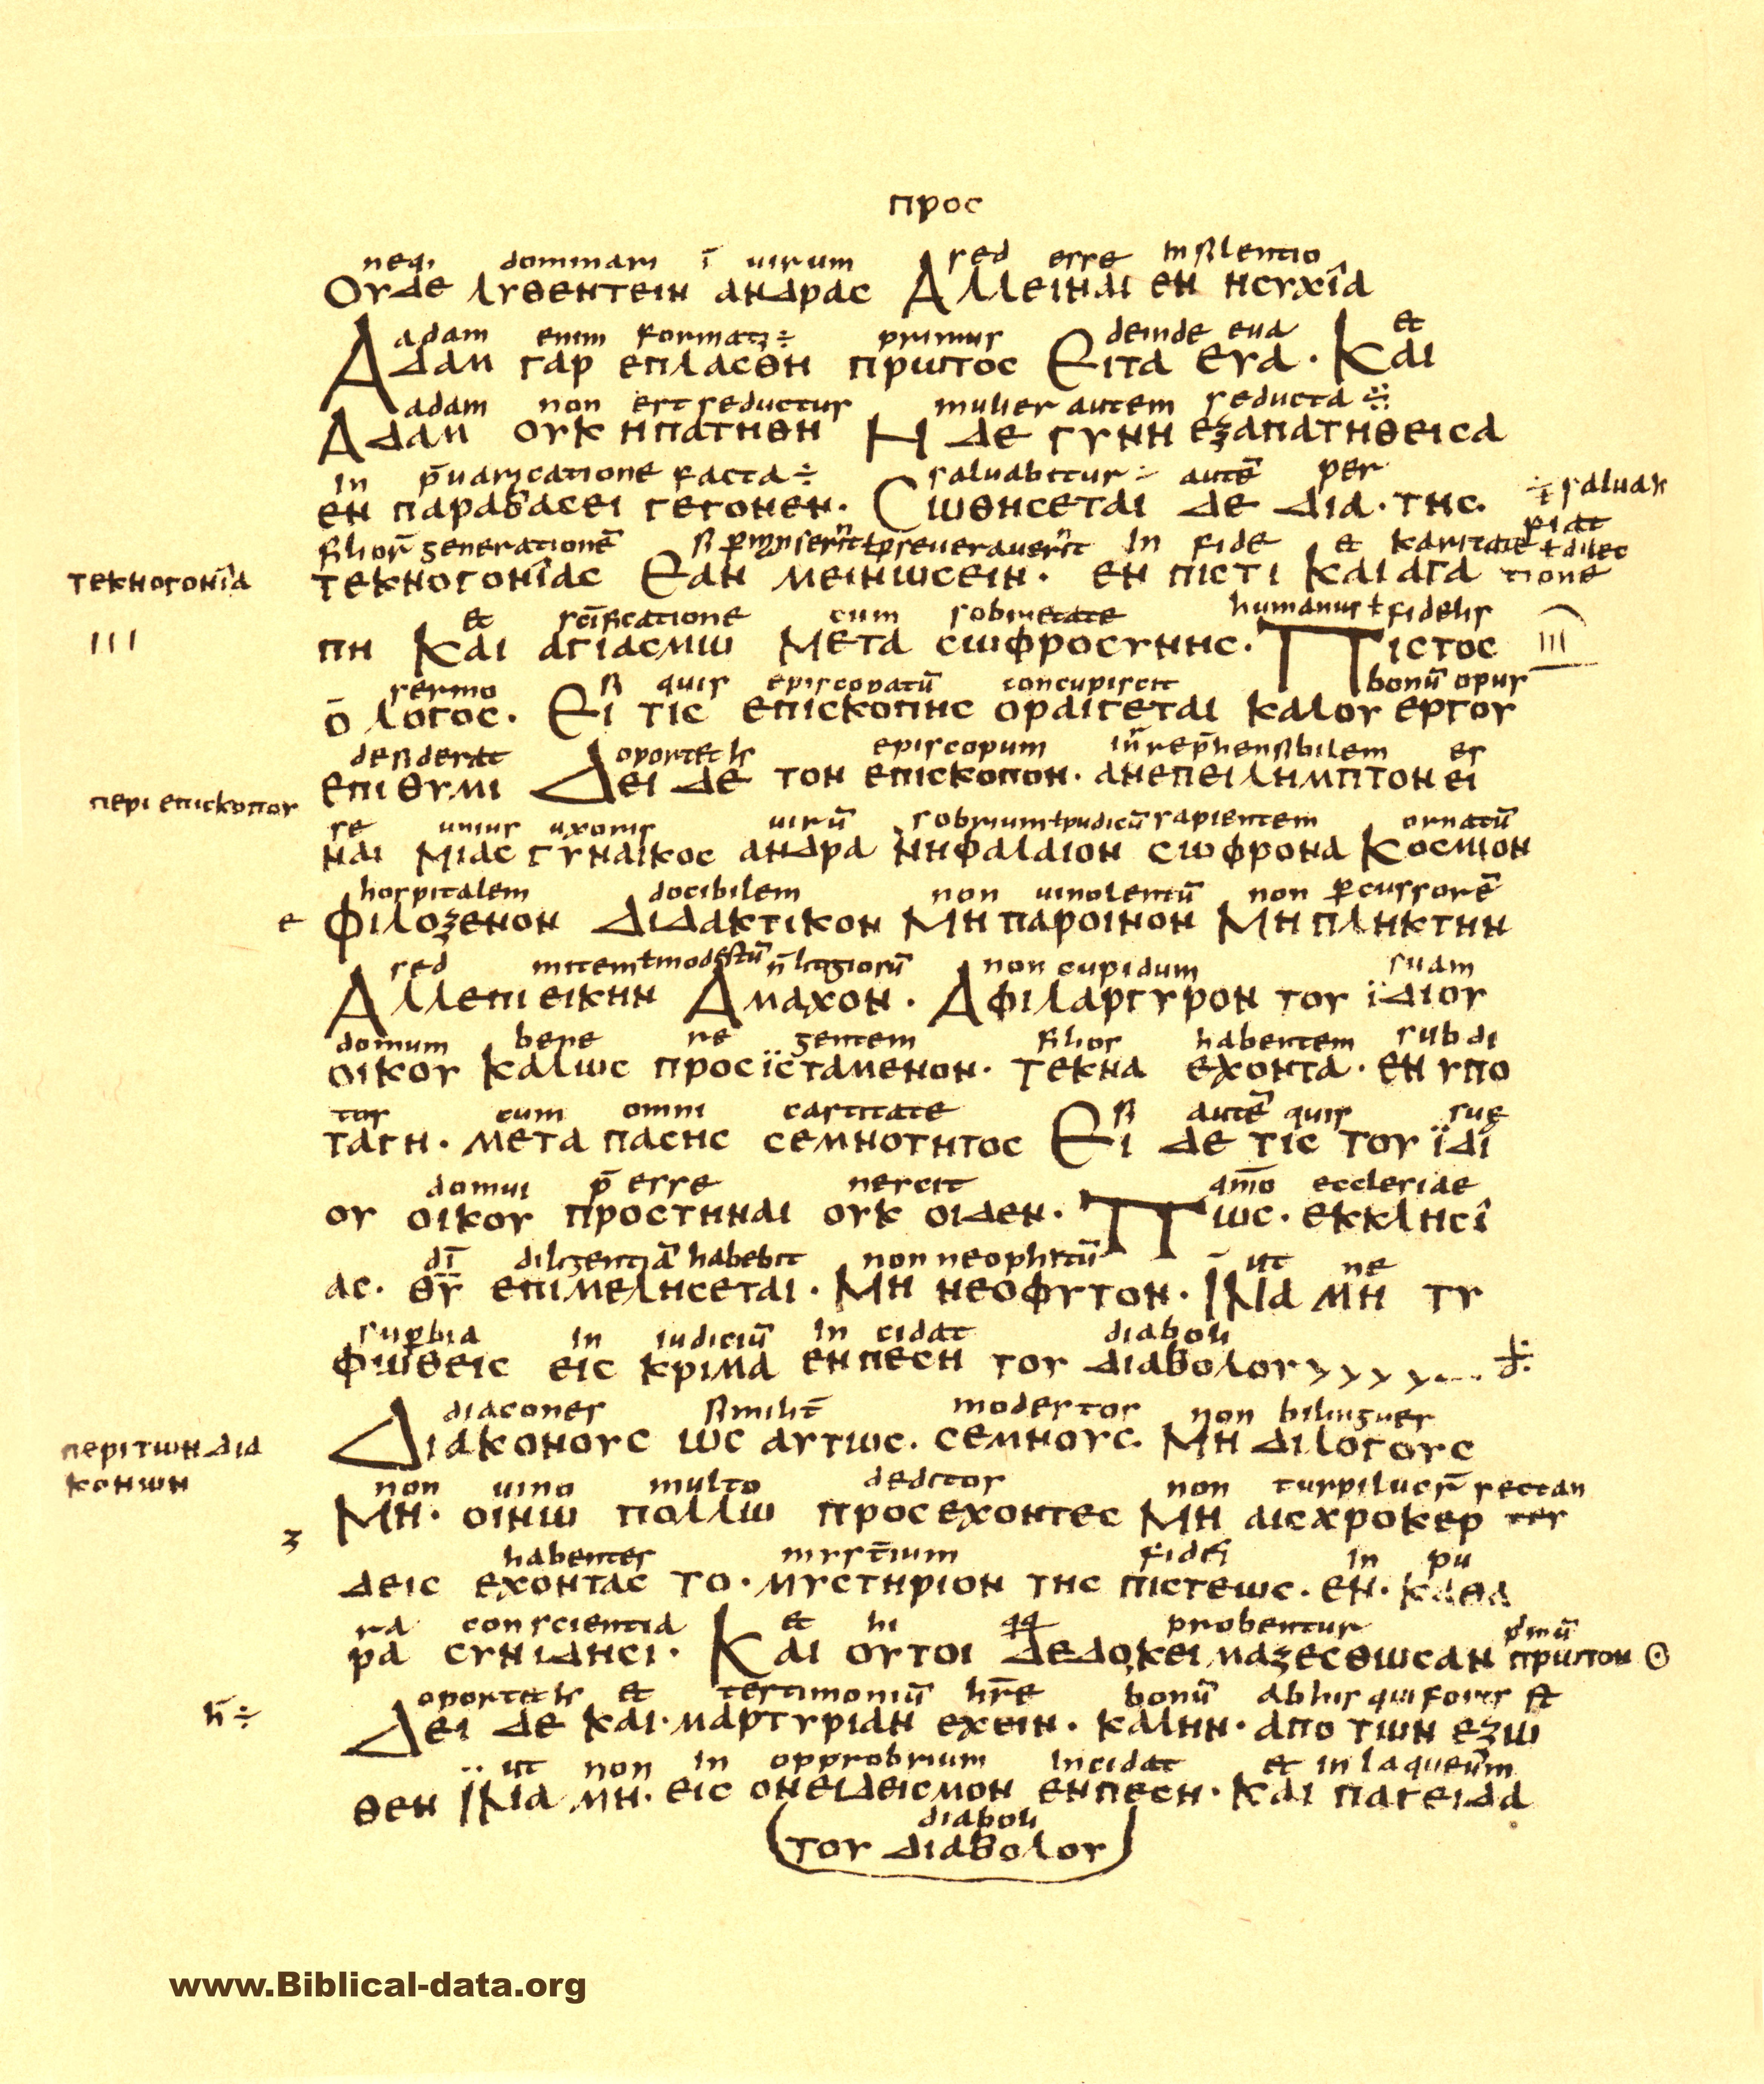 προς
neq; dominari ī uirum sed esse in silentio
Ουδε λυθεντειν ανδρας Αλλειναι εν ησυχια
adam enim formatꝫ÷ primus deinde eua et
Αδαμ γαρ επλασθη πρωτος Ειτα ευα · Και
adam non est seductus mulier autem seducta ÷
Αδαμ ουκ ηπατηθη Η δε γυνη εξαπατηθεισα
In p̄uaricatione facta÷ saluabitur÷ autē per ÷ saluaѣ
εν παραβασει γεγονεν · Cωθησεται δε δια · της ·
filior̄ generationē si ꝑmanserīt ł ꝑseuerauerīt In fide et karitate ł dilec
τεκνογονια τεκνογονιας Εαν μεινωσειν · εν πιστι Και αγα tione
et sc̄ificatione cum sobrietate humanus ł fidelis
III πη Και αγιασμω Μετα σωφροσυνης · Πιστος III
sermo si quis episcopatū concupiscit bonū opus
ο λογος · Ει τις επισκοπης οραιγεται καλου εργου
desiderat oportet episcopum inrep̄hensibilem es
επιθυμι Δει δε τον επισκοπον · ανεπειλημπτον ει
περι επισκοπου
se unius uxoris uirū sobrium ł pudicū sapientem ornatū
ναι Μιας γυναικος ανδρα νηφαλαιον σωφρονα Κοσμιον
hospitalem docibilem non uinolentū non ꝑcussorē
ε φιλοξενον διδακτικον Μη παροινον Μη πληκτην
sed mitem ł modestū n̄ litigiosū non cupidum suam
Αλλεπιεικην Αμαχον · Αφιλαργυρον του ϊδιου
domum bene re gentem filios habentem subdi
οικου καλως προσϊσταμενον · τεκνα εχοντα · εν υπο
tos cum omni castitate si autē quis sue
ταγη · μετα πασης σεμνοτητος Ει δε τις του ϊδι
domui p̄ esse nescit qm̄o ecclesiae
ου οικου προστηναι ουκ οιδεν · Πως · εκκλησι
dī diligentiā habebit non neophitū ut ne
ας · θῡ επιμελησεται · Μη νεοφυτον · ΙΝα μη τυ
suꝑbia in iudiciū in cidat diaboli
φωθεις εις κριμα ενπεση του διαβολου
diacones similit̄ modestos non bilingues
περι των δια Διακονους ως αυτως · σεμνους · Μη διλογους
κονων
non uino multo deditos non turpilucr̄ sectan
Μη · οινω πολλω προσεχοντες Μη αισχροκερ tes
habentes myst̄ium fidei in pu
δεις εχοντας το · μυστηριον της πιστεως · εν · καθα
ra conscientia et hi probentur pͥmū
ρα συνιδησι · Και ουτοι δεδοκειμαζεσθωσαν πρωτον
oportet et testimoniū hr̄e bonū ab his qui foris st̄
h̄÷ Δει δε και · μαρτυριαν εχειν · καλην · απο των εξω
ut non in opprobrium incidat et in laqueūm
θεν ΙΝα μη · εις ονειδεισμον ενπεση · Και παγειδα
diaboli
του διαβολου
www.Biblical-data.org